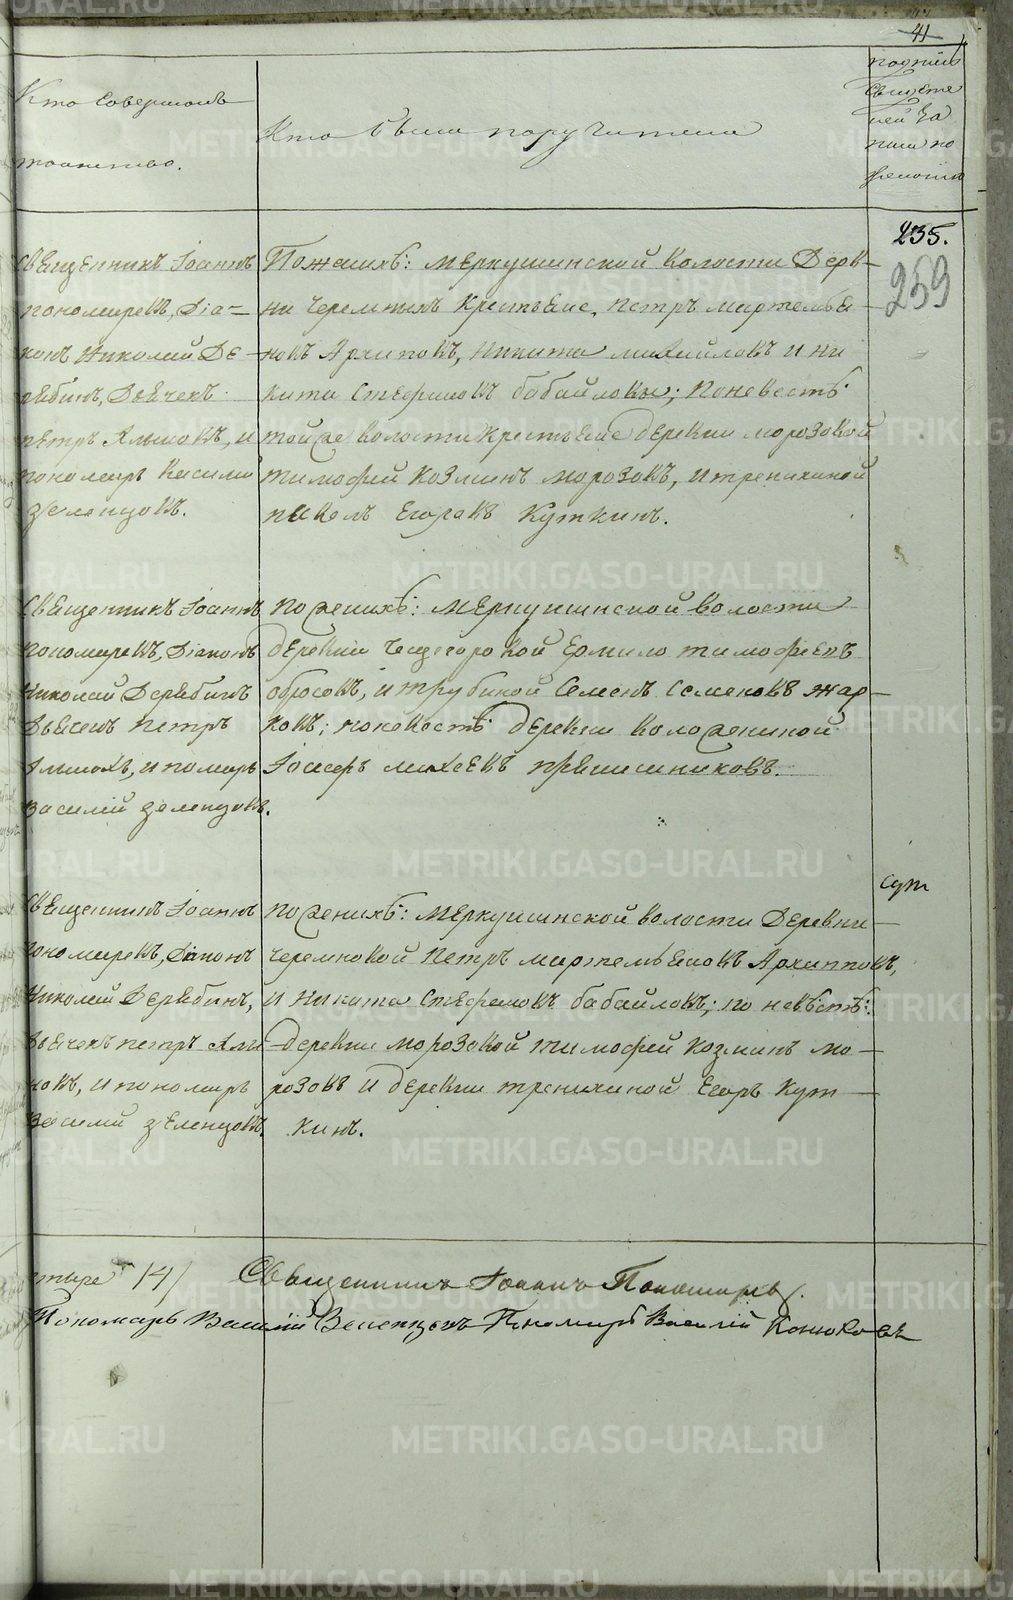 41
Кто совершалъ
таинство.
Кто были поручители
подпись
свидете
лей за
писи по
желанію
235.
259
Священникъ Іоаннъ
Пономаревъ, Діа=
конъ Николай Де
рябинъ, Дьячекъ
петръ Алмовъ, и
пономарь Василій
Зеленцовъ.
По женихѣ: меркушинской волости Дерев
ни Черемныхъ крестьяне, петръ мартемья
новъ Архиповъ, Никита михайловъ и ни
кита Стефановъ бабайловы; по невестѣ:
тойже волости крестьяне деревни морозовой
тимофей козминъ морозовъ, и тренихиной
павелъ Егоровъ Куткинъ.
Священникъ Іоаннъ
пономаревъ, Діаконъ
Николай Дерябинъ
Дьячекъ петръ
Алмовъ, и помарь
Василій зеленцовъ.
по женихѣ: меркушинской волости
деревни Ермило тимофеевъ
обросовъ, и трубиной Семенъ Семеновъ жар
ковъ; по невестѣ деревни воложениной
Іосифъ михеевъ пряшишниковъ.
Священникъ Іоаннъ
пономаревъ, Діяконъ
Николай Дерябинъ,
Дьячекъ петръ Алм
новъ, и пономарь
Василий зеленцовъ.
по женихѣ: меркушинской волости Деревни
Черемновой петръ мартемьяновъ Архиповъ,
и никита Стефановъ бабайловъ; по невѣстѣ:
деревни морозовой тимофей козминъ мо
розовъ и деревни тренихиной Егоръ Кут
кинъ.
сут
14)
Священникъ Іоаннъ Пономаревъ.
Пономарь Василій Зеленцовъ Пономарь Василій Конюховъ
METRIKI.GASO-URAL.RU